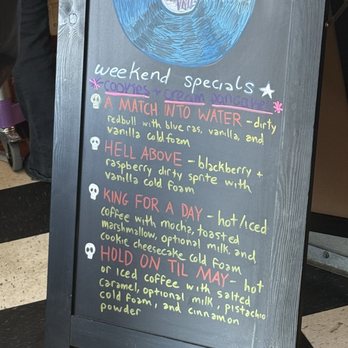 weekend specials
cookies + cream pancake
A MATCH INTO WATER - dirty
redbull with blue ras, vanilla, and
vanilla cold foam
HELL ABOVE - blackberry +
raspberry dirty sprite with
vanilla cold foam
KING FOR A DAY - hot/iced
coffee with mocha, toasted
marshmallow, optional milk, and
cookie cheesecake cold foam
HOLD ON TIL MAY - hot
or iced coffee with salted
caramel, optional milk, pistachio
cold foam, and cinnamon
powder